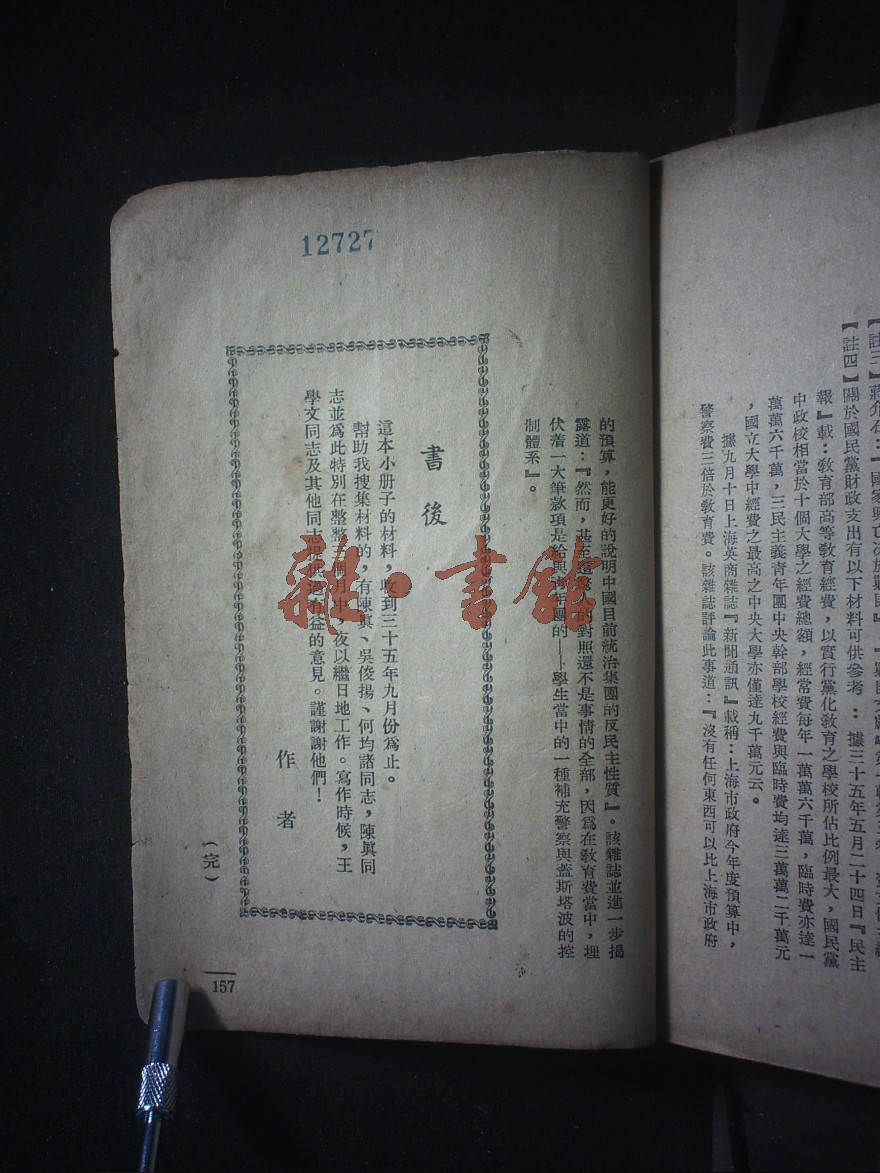 【註四】關於國民黨財政支出有以下材料可供參考：據三十五年五月二十四日『民主
報』載：教育部高等教育經費，以實行黨化教育之學校所佔比例最大，國民黨
中政校相當於十個大學之經費總額，經常費每年一萬萬六千萬，臨時費亦達一
萬萬六千萬，三民主義青年團中央幹部學校經費與臨時費均達三萬萬二千萬元
，國立大學中經費之最高之中央大學亦僅達九千萬元云。
據九月十日上海英商雜誌『新聞通訊』載稱：上海市政府今年度預算中，
警察費三倍於教育費。該雜誌評論此事道：『沒有任何東西可以比上海市政府
的預算，能更好的說明中國目前統治集團的反民主性質』。該雜誌並進一步揭
露道：『然而，甚至這驚人的對照還不是事情的全部，因爲在教育費當中，埋
伏着一大筆款項是給與青年團的——學生當中的一種補充警察與蓋斯塔波的控
制體系』。
書後
這本小册子的材料，收到三十五年九月份爲止。
幫助我搜集材料的，有陳眞、吳俊揚、何均諸同志，陳眞同
志並爲此特別在整整三個月中，夜以繼日地工作。寫作時候，王
學文同志及其他同志提供過有益的意見。謹謝謝他們！
作者
（完）
157
12727